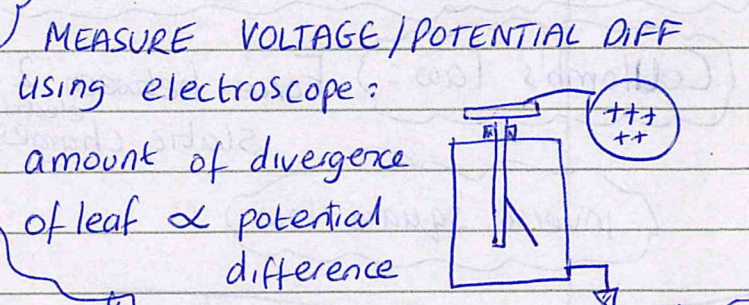 MEASURE VOLTAGE/POTENTIAL DIFF
using electroscope:
+++
++
amount of divergence
of leaf ∝ potential
difference